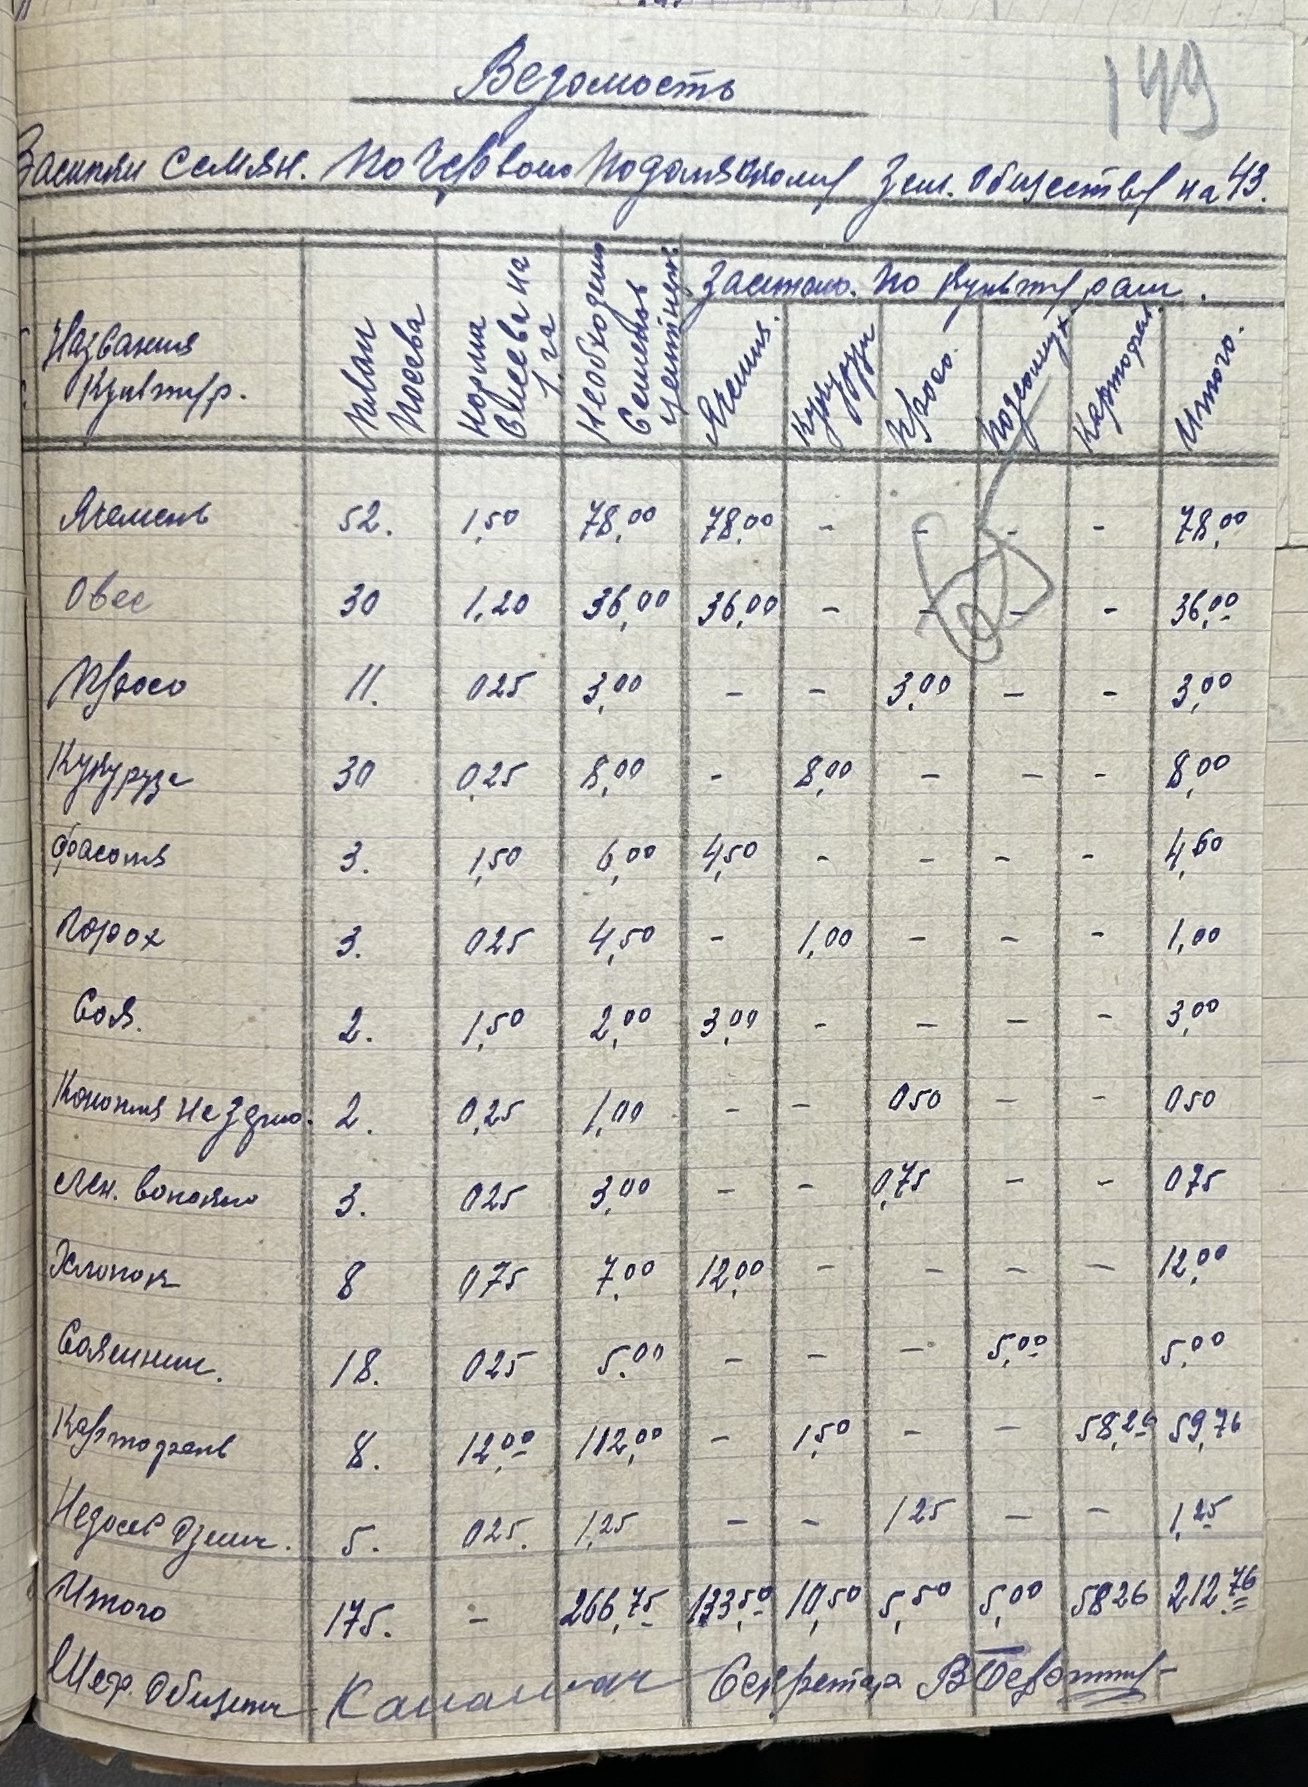 149
Ведомость
Засыпки семян. По Червоно Подолянскому Зем. Обществу на 43.
Названия Культур. План Посева Норма Высева на 1 га Необходимо Семян центнер. Засыпано. По Культурам.
Ячменя. Кукурузы Просо. Подсолнух Картофел. Итого.
Ячмень 52. 1,50 78,00 78,00 - - - - 78,00
Овес 30 1,20 36,00 36,00 - - - - 36,00
Просо 11. 025 3,00 - - 3,00 - - 3,00
Кукуруза 30 0,25 8,00 - 8,00 - - - 8,00
Фасоля 3. 1,50 6,00 4,50 - - - - 4,50
Горох 3. 025 4,50 - 1,00 - - - 1,00
Соя. 2. 1,50 2,00 3,00 - - - - 3,00
Конопля 2. 0,25 1,00 - - 050 - - 050
Лен. 3. 025 3,00 - - 0,75 - - 075
Хлопок 8 075 7,00 12,00 - - - - 12,00
Соняшник. 18. 025 5,00 - - - 5,00 5,00
Картофель 8. 12,00 112,00 - 1,50 - - 58,26 59,76
Недосев Озим. 5. 025. 1,25 - - 125 - - 1,25
Итого 175. - 266,75 133,50 10,50 5,50 5,00 5826 212,76
Общины Секретарь